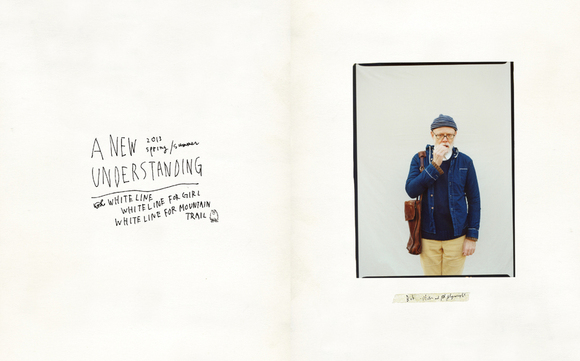 A NEW 2013
spring/summer
UNDERSTANDING
WHITE LINE
WHITE LINE FOR GIRL
WHITE LINE FOR MOUNTAIN
TRAIL